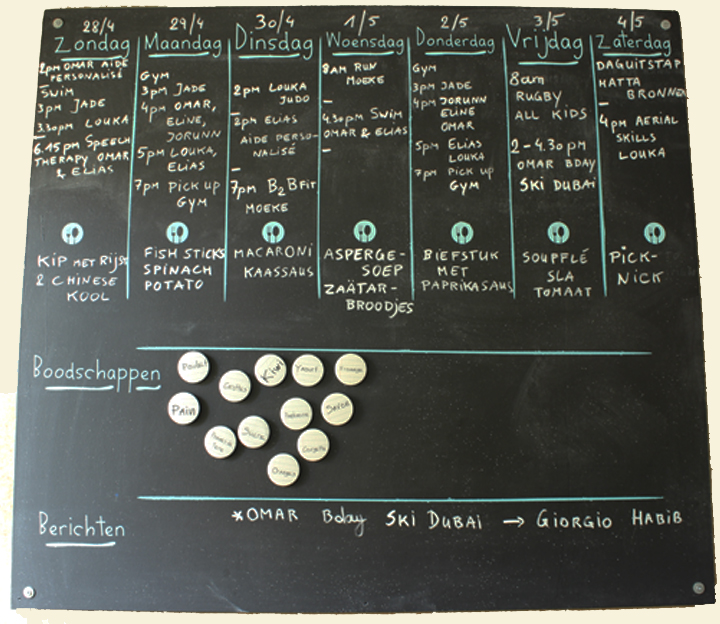 28/4
Zondag
2pm OMAR AIDE
PERSONALISÉ
SWIM
3pm JADE
3.30pm LOUKA
6.45pm SPEECH
THERAPY OMAR
& ELIAS
KIP MET RIJST
& CHINESE
KOOL
29/4
Maandag
GYM
3pm JADE
4pm OMAR,
ELINE,
JORUNN
5pm LOUKA,
ELIAS
7pm PICK UP
GYM
FISH STICKS
SPINACH
POTATO
30/4
Dinsdag
2pm LOUKA
JUDO
2pm ELIAS
AIDE PERSO-
NALISÉ
7pm B2BFIT
MOEKE
MACARONI
KAASSAUS
1/5
Woensdag
8AM RUN
MOEKE
4.30pm SWIM
OMAR & ELIAS
ASPERGE-
SOEP
ZAÄTAR-
BROODJES
2/5
Donderdag
GYM
3pm JADE
4pm JORUNN
ELINE
OMAR
5pm ELIAS
LOUKA
7pm PICK UP
GYM
BIEFSTUK
MET
PAPRIKASAUS
3/5
Vrijdag
8am
RUGBY
ALL KIDS
2-4.30pm
OMAR BDAY
SKI DUBAI
SOUFFLÉ
SLA
TOMAAT
4/5
Zaterdag
DAGUITSTAP
HATTA
BRONNEN
4pm AERIAL
SKILLS
LOUKA
PICK-
NICK
Boodschappen
Kiwi
Yaourt
PAIN
Sucre
Berichten
*OMAR Bday SKI DUBAI → GIORGIO HABIB